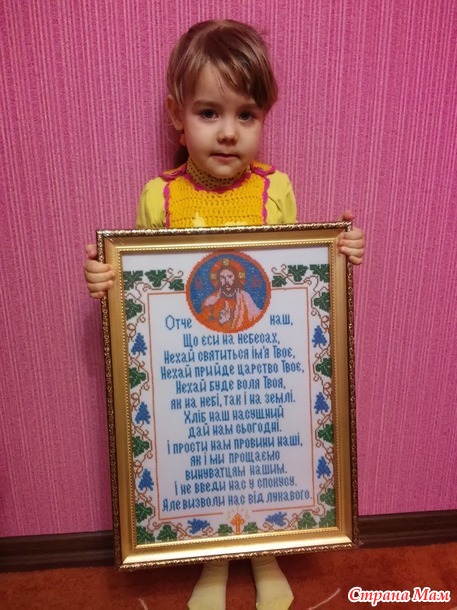 Отче наш,
Що єси на небесах,
Нехай святиться ім'я Твоє,
Нехай прийде царство Твоє,
Нехай буде воля Твоя,
як на небі, так і на землі.
Хліб наш насущний
дай нам сьогодні.
і прости нам провини наші,
як і ми прощаємо
винуватцям нашим.
і не введи нас у спокусу,
Але визволи нас від лукавого.
Страна Мам